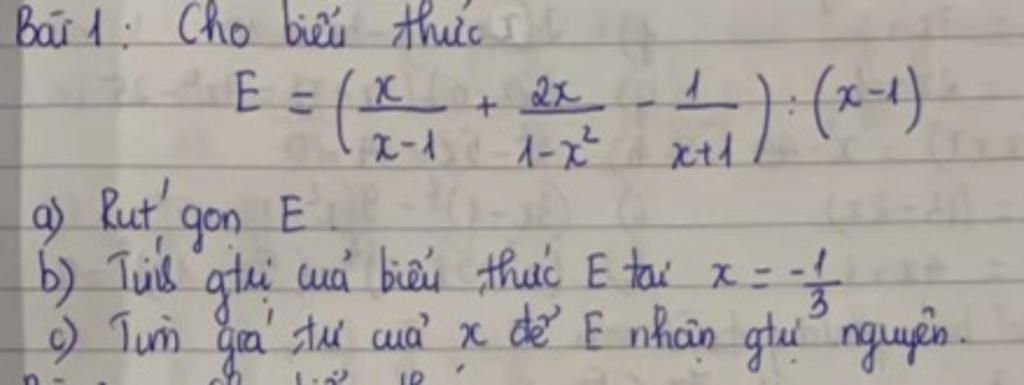 Bài 1: Cho biểu thức
E = (x/(x-1) + 2x/(1-x²) - 1/(x+1)) : (x-1)
a) Rút gọn E.
b) Tính gtrị của biểu thức E tại x = -1/3
c) Tìm giá trị của x để E nhận gtrị nguyên.